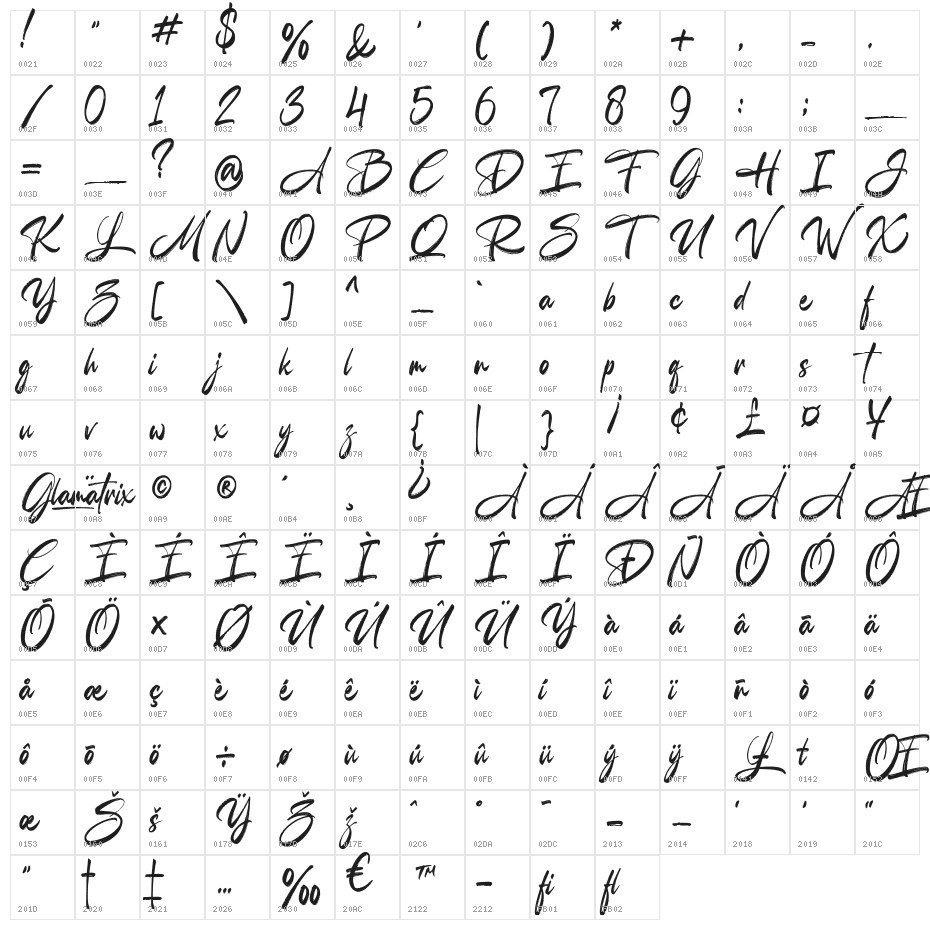 ! " # $ % & ' ( ) * + , - .
0021 0022 0023 0024 0025 0026 0027 0028 0029 002A 002B 002C 002D 002E
/ 0 1 2 3 4 5 6 7 8 9 : ; _
002F 0030 0031 0032 0033 0034 0035 0036 0037 0038 0039 003A 003B 003C
= _ ? @ A B C D E F G H I J
003D 003E 003F 0040 0041 0042 0043 0044 0045 0046 0047 0048 0049 004A
K L M N O P Q R S T U V W X
004B 004C 004D 004E 004F 0050 0051 0052 0053 0054 0055 0056 0057 0058
Y Z [ \ ] ^ _ ` a b c d e f
0059 005A 005B 005C 005D 005E 005F 0060 0061 0062 0063 0064 0065 0066
g h i j k l m n o p q r s t
0067 0068 0069 006A 006B 006C 006D 006E 006F 0070 0071 0072 0073 0074
u v w x y z { | } ¡ ¢ £ ¤ ¥
0075 0076 0077 0078 0079 007A 007B 007C 007D 00A1 00A2 00A3 00A4 00A5
Glamätrix © ® ´ ¸ ¿ À Á Â Ã Ä Å Æ
00A8 00A9 00AE 00B4 00B8 00BF 00C0 00C1 00C2 00C3 00C4 00C5 00C6
Ç È É Ê Ë Ì Í Î Ï Ð Ñ Ò Ó Ô
00C7 00C8 00C9 00CA 00CB 00CC 00CD 00CE 00CF 00D0 00D1 00D2 00D3 00D4
Õ Ö × Ø Ù Ú Û Ü Ý à á â ã ä
00D5 00D6 00D7 00D8 00D9 00DA 00DB 00DC 00DD 00E0 00E1 00E2 00E3 00E4
å æ ç è é ê ë ì í î ï ñ ò ó
00E5 00E6 00E7 00E8 00E9 00EA 00EB 00EC 00ED 00EE 00EF 00F1 00F2 00F3
ô õ ö ÷ ø ù ú û ü ý ÿ Ł ł Œ
00F4 00F5 00F6 00F7 00F8 00F9 00FA 00FB 00FC 00FD 00FF 0141 0142 0152
œ Š š Ÿ Ž ž ˆ ˚ ˜ – — ‘ ’ “
0153 0160 0161 0178 017D 017E 02C6 02DA 02DC 2013 2014 2018 2019 201C
” † ‡ … ‰ € ™ − fi fl
201D 2020 2021 2026 2030 20AC 2122 2212 FB01 FB02